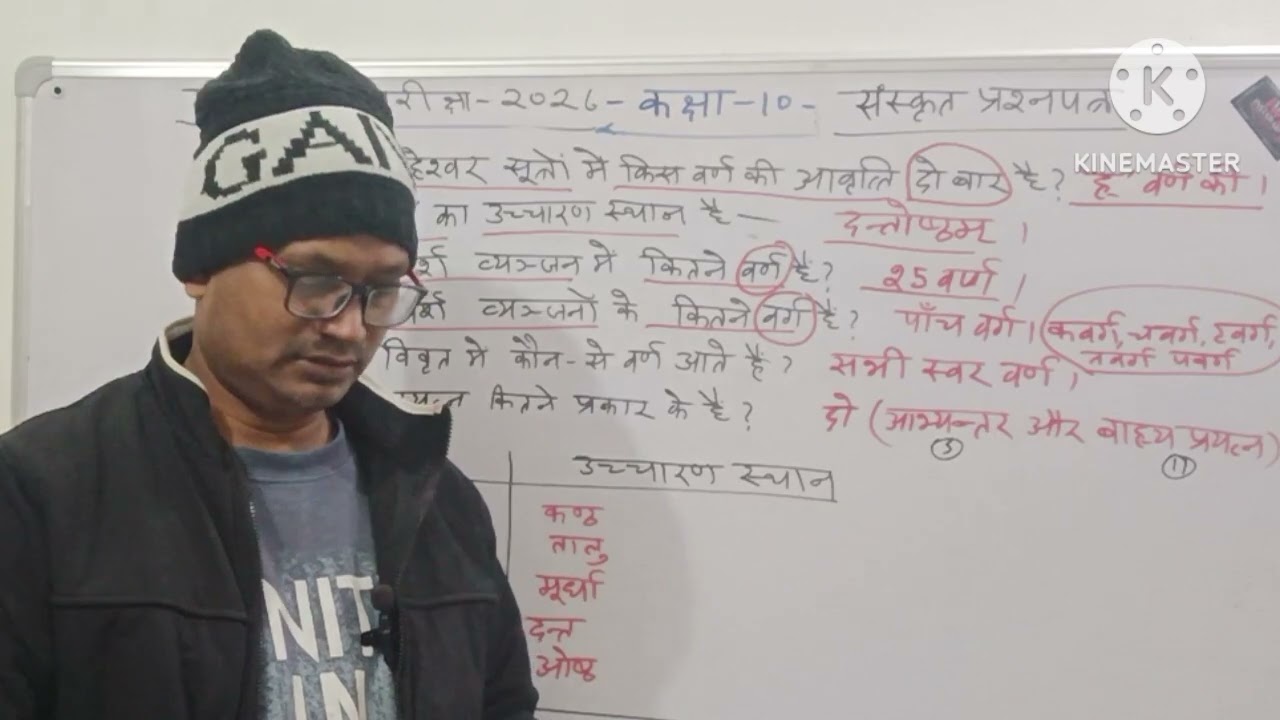 रीक्षा - २०२६ - कक्षा - 10 - संस्कृत प्रश्नपत्र
हेश्वर सूत्रों मे किस वर्ण की आवृत्ति दो बार है? ह वर्ण की।
का उच्चारण स्थान है — दन्तोष्ठम्।
र्श व्यञ्जन में कितने वर्ण हैं? २५ वर्ण।
र्श व्यञ्जनों के कितने वर्ग है? पाँच वर्ग। (कवर्ग, चवर्ग, टवर्ग,
तवर्ग पवर्ग
विवृत मे कौन-से वर्ण आते हैं? सभी स्वर वर्ण।
कितने प्रकार के है? दो (आभ्यन्तर और बाह्य प्रयत्न)
5 11
उच्चारण स्थान
कण्ठ
तालु
मूर्धा
दन्त
ओष्ठ
GAI
NIT
IN
K
KINEMASTER